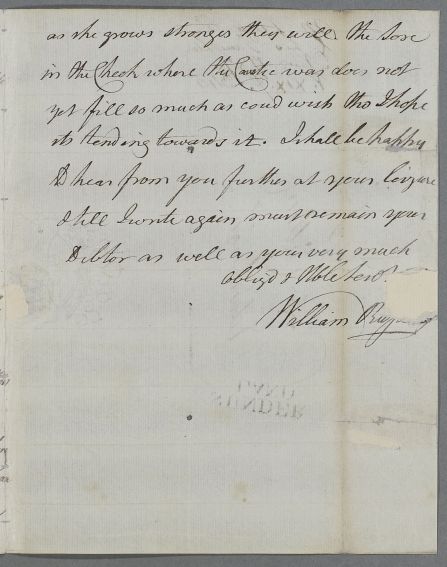 as she grows stronger they will. The Sore
in the Cheek where the Caustic was does not
yet fill so much as coud wish tho I hope
its tending towards it. I shall be happy
to hear from you further at your leizure
& till I write again must remain your
Debtor as well as your very much
obligd & Hble Servt.
William